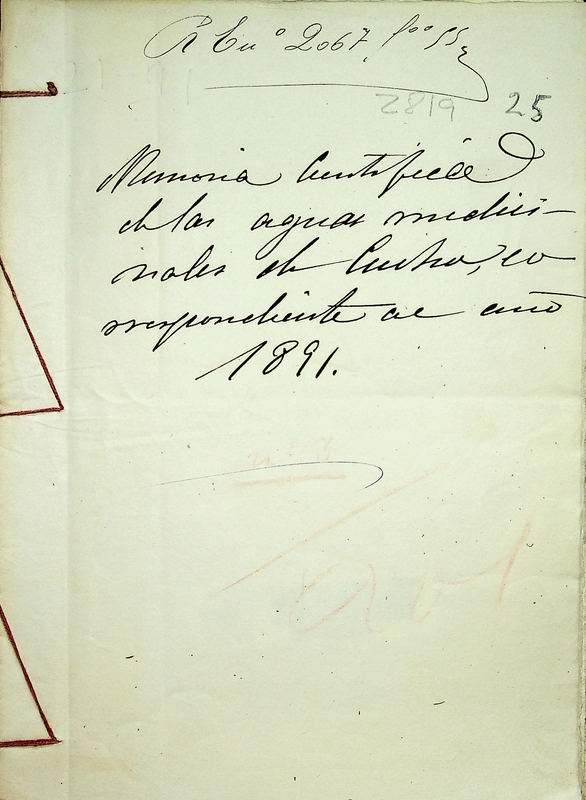 R Eu º 2067, fºº 55
2819 25
Memoria Cientifica
de las aguas medici-
nales de Cucho, co
rrespondiente al año
1891.
nº 3